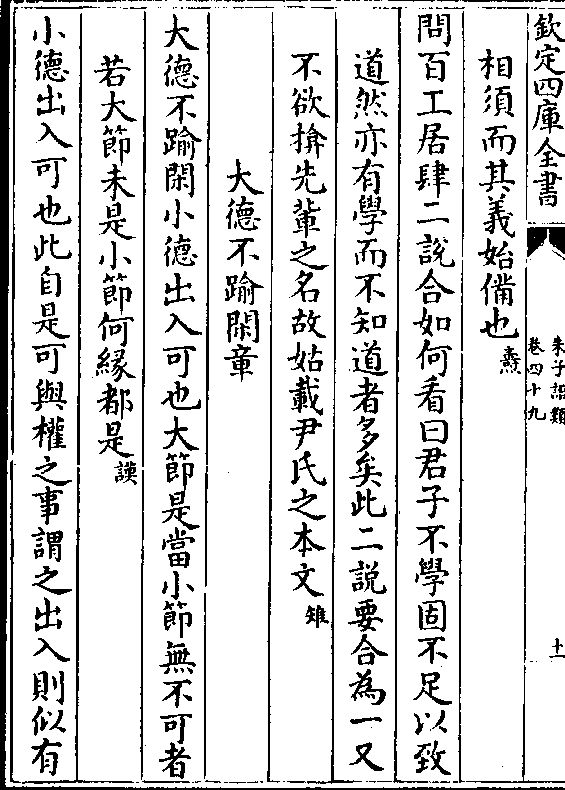 欽定四庫全書
朱子語類
卷四十九
十一
相須而其義始備也燾
問百工居肆二說合如何看曰君子不學固不足以致
道然亦有學而不知道者多矣此二説要合為一又
不欲揜先輩之名故姑載尹氏之本文雉
大德不踰閑章
大德不踰閑小德出入可也大節是當小節無不可者
若大節未是小節何縁都是謨
小德出入可也此自是可與權之事謂之出入則似有